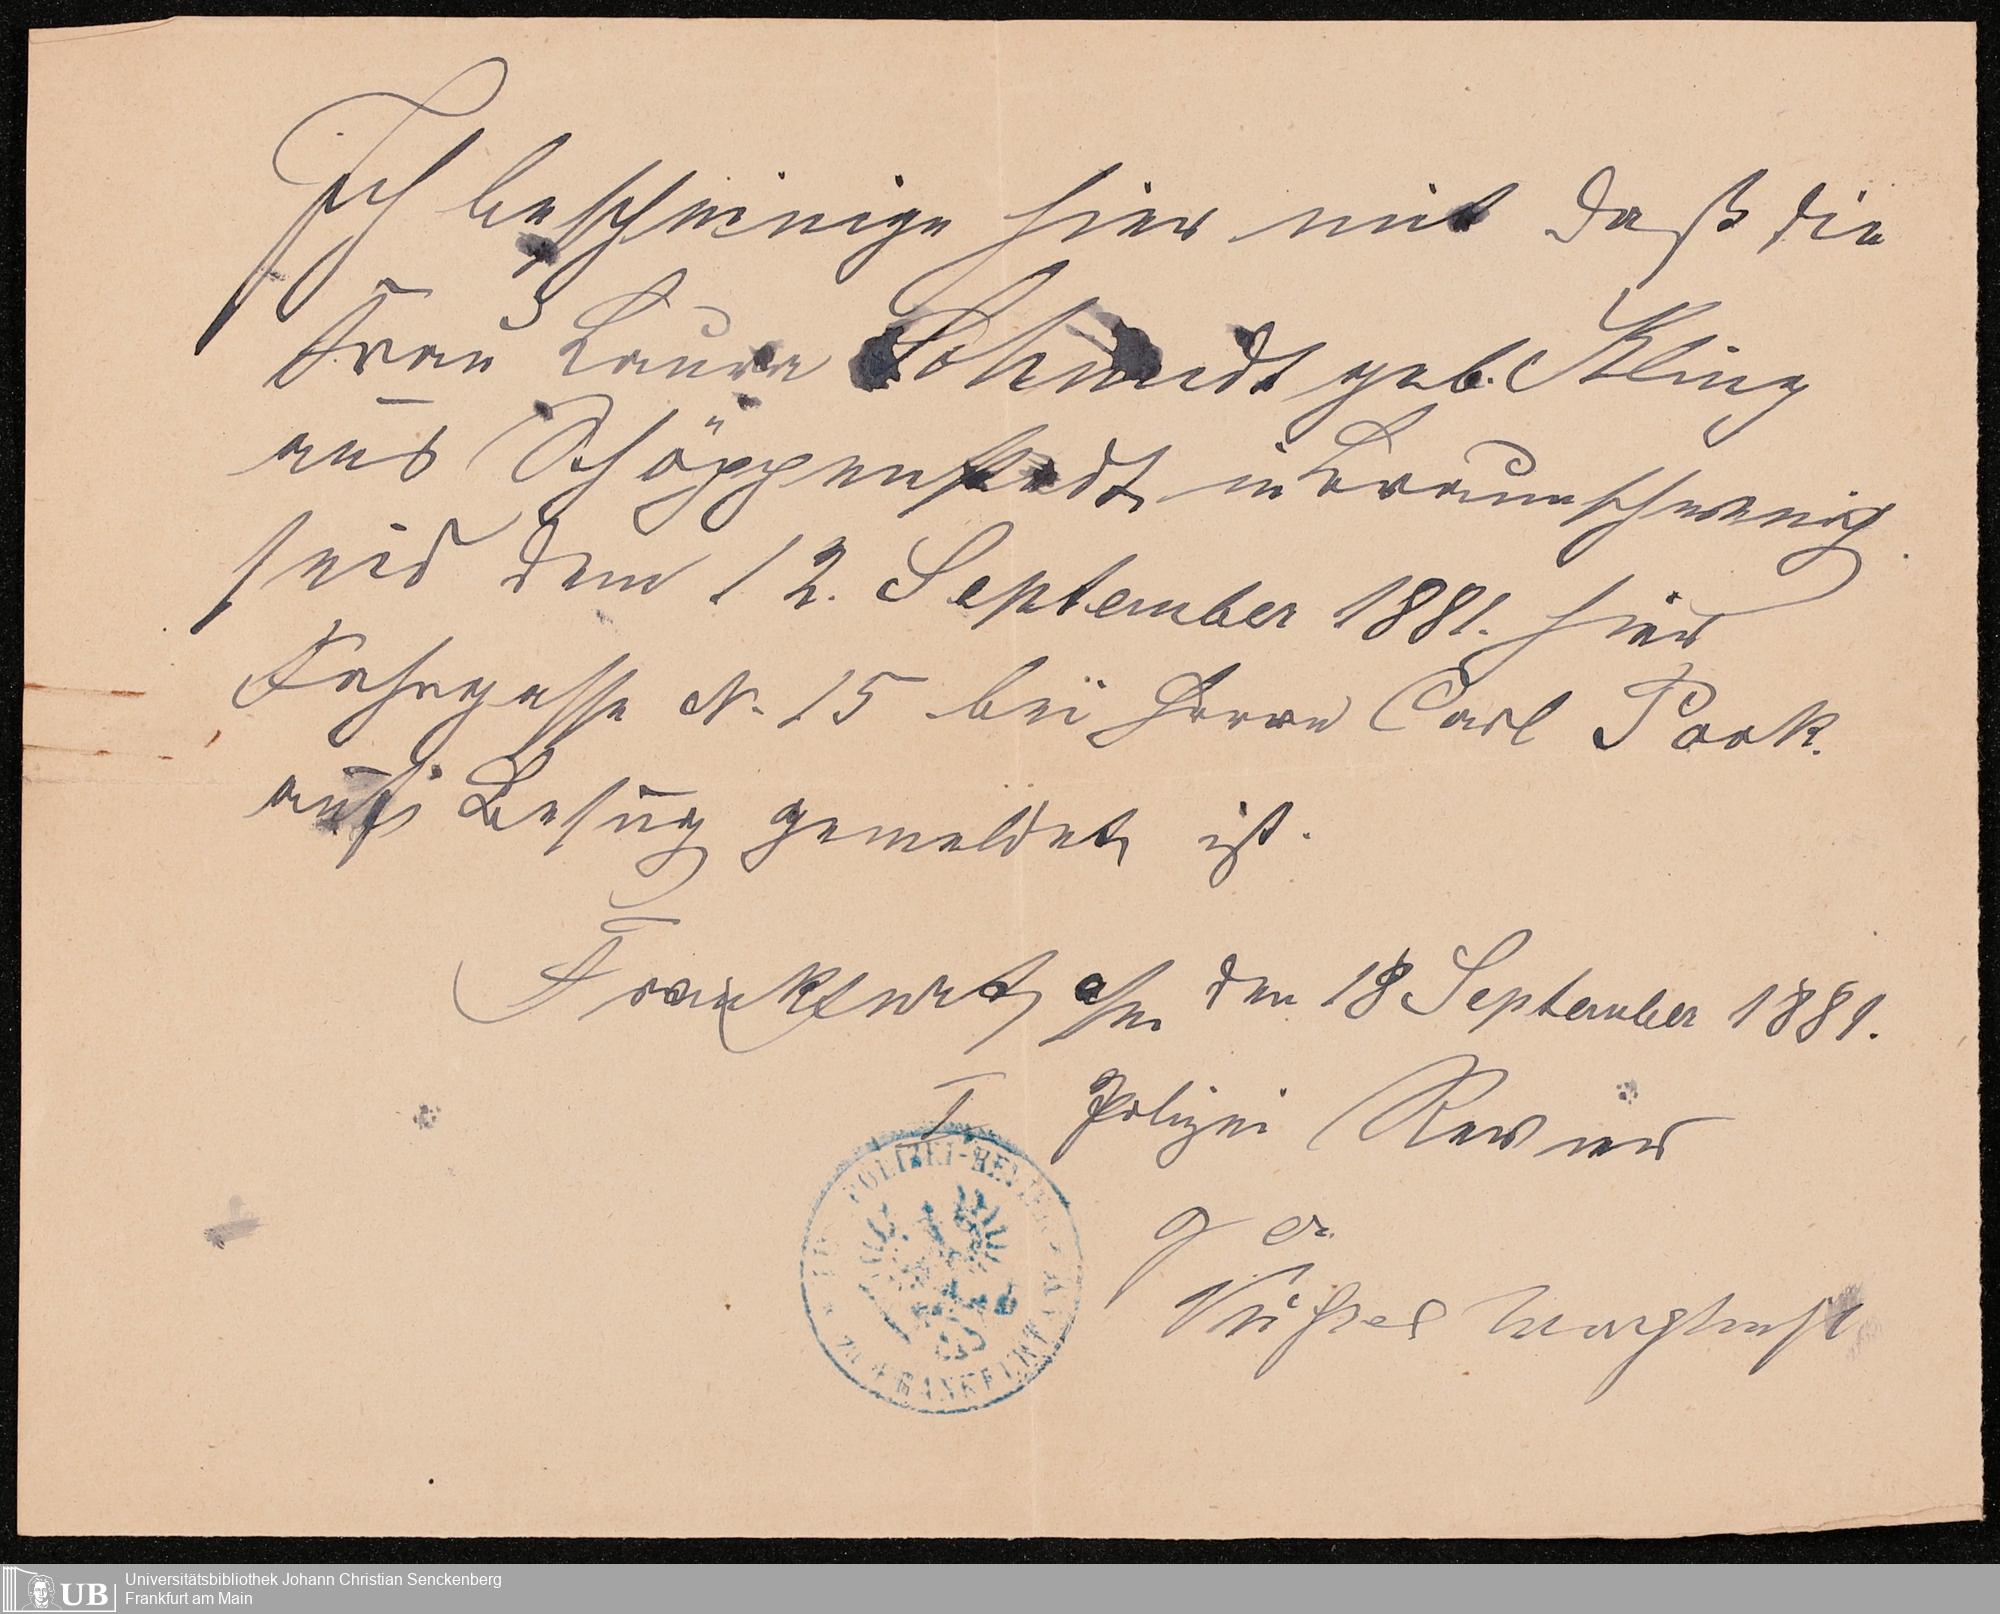 Ich bescheinige hier mit daß die
Frau Laura Schmidt geb. Kling
aus Schöppenstedt in Braunschweig
seid dem 12. September 1881. hier
Fahrgasse N. 15 bei Herrn Carl Pook.
auf Besug gemeldet ist.
Frankfurt a/m den 18 September 1881.
I Polizei Revier
POLIZEI-REVIER
FRANKFURT
Universitätsbibliothek Johann Christian Senckenberg
Frankfurt am Main
UB